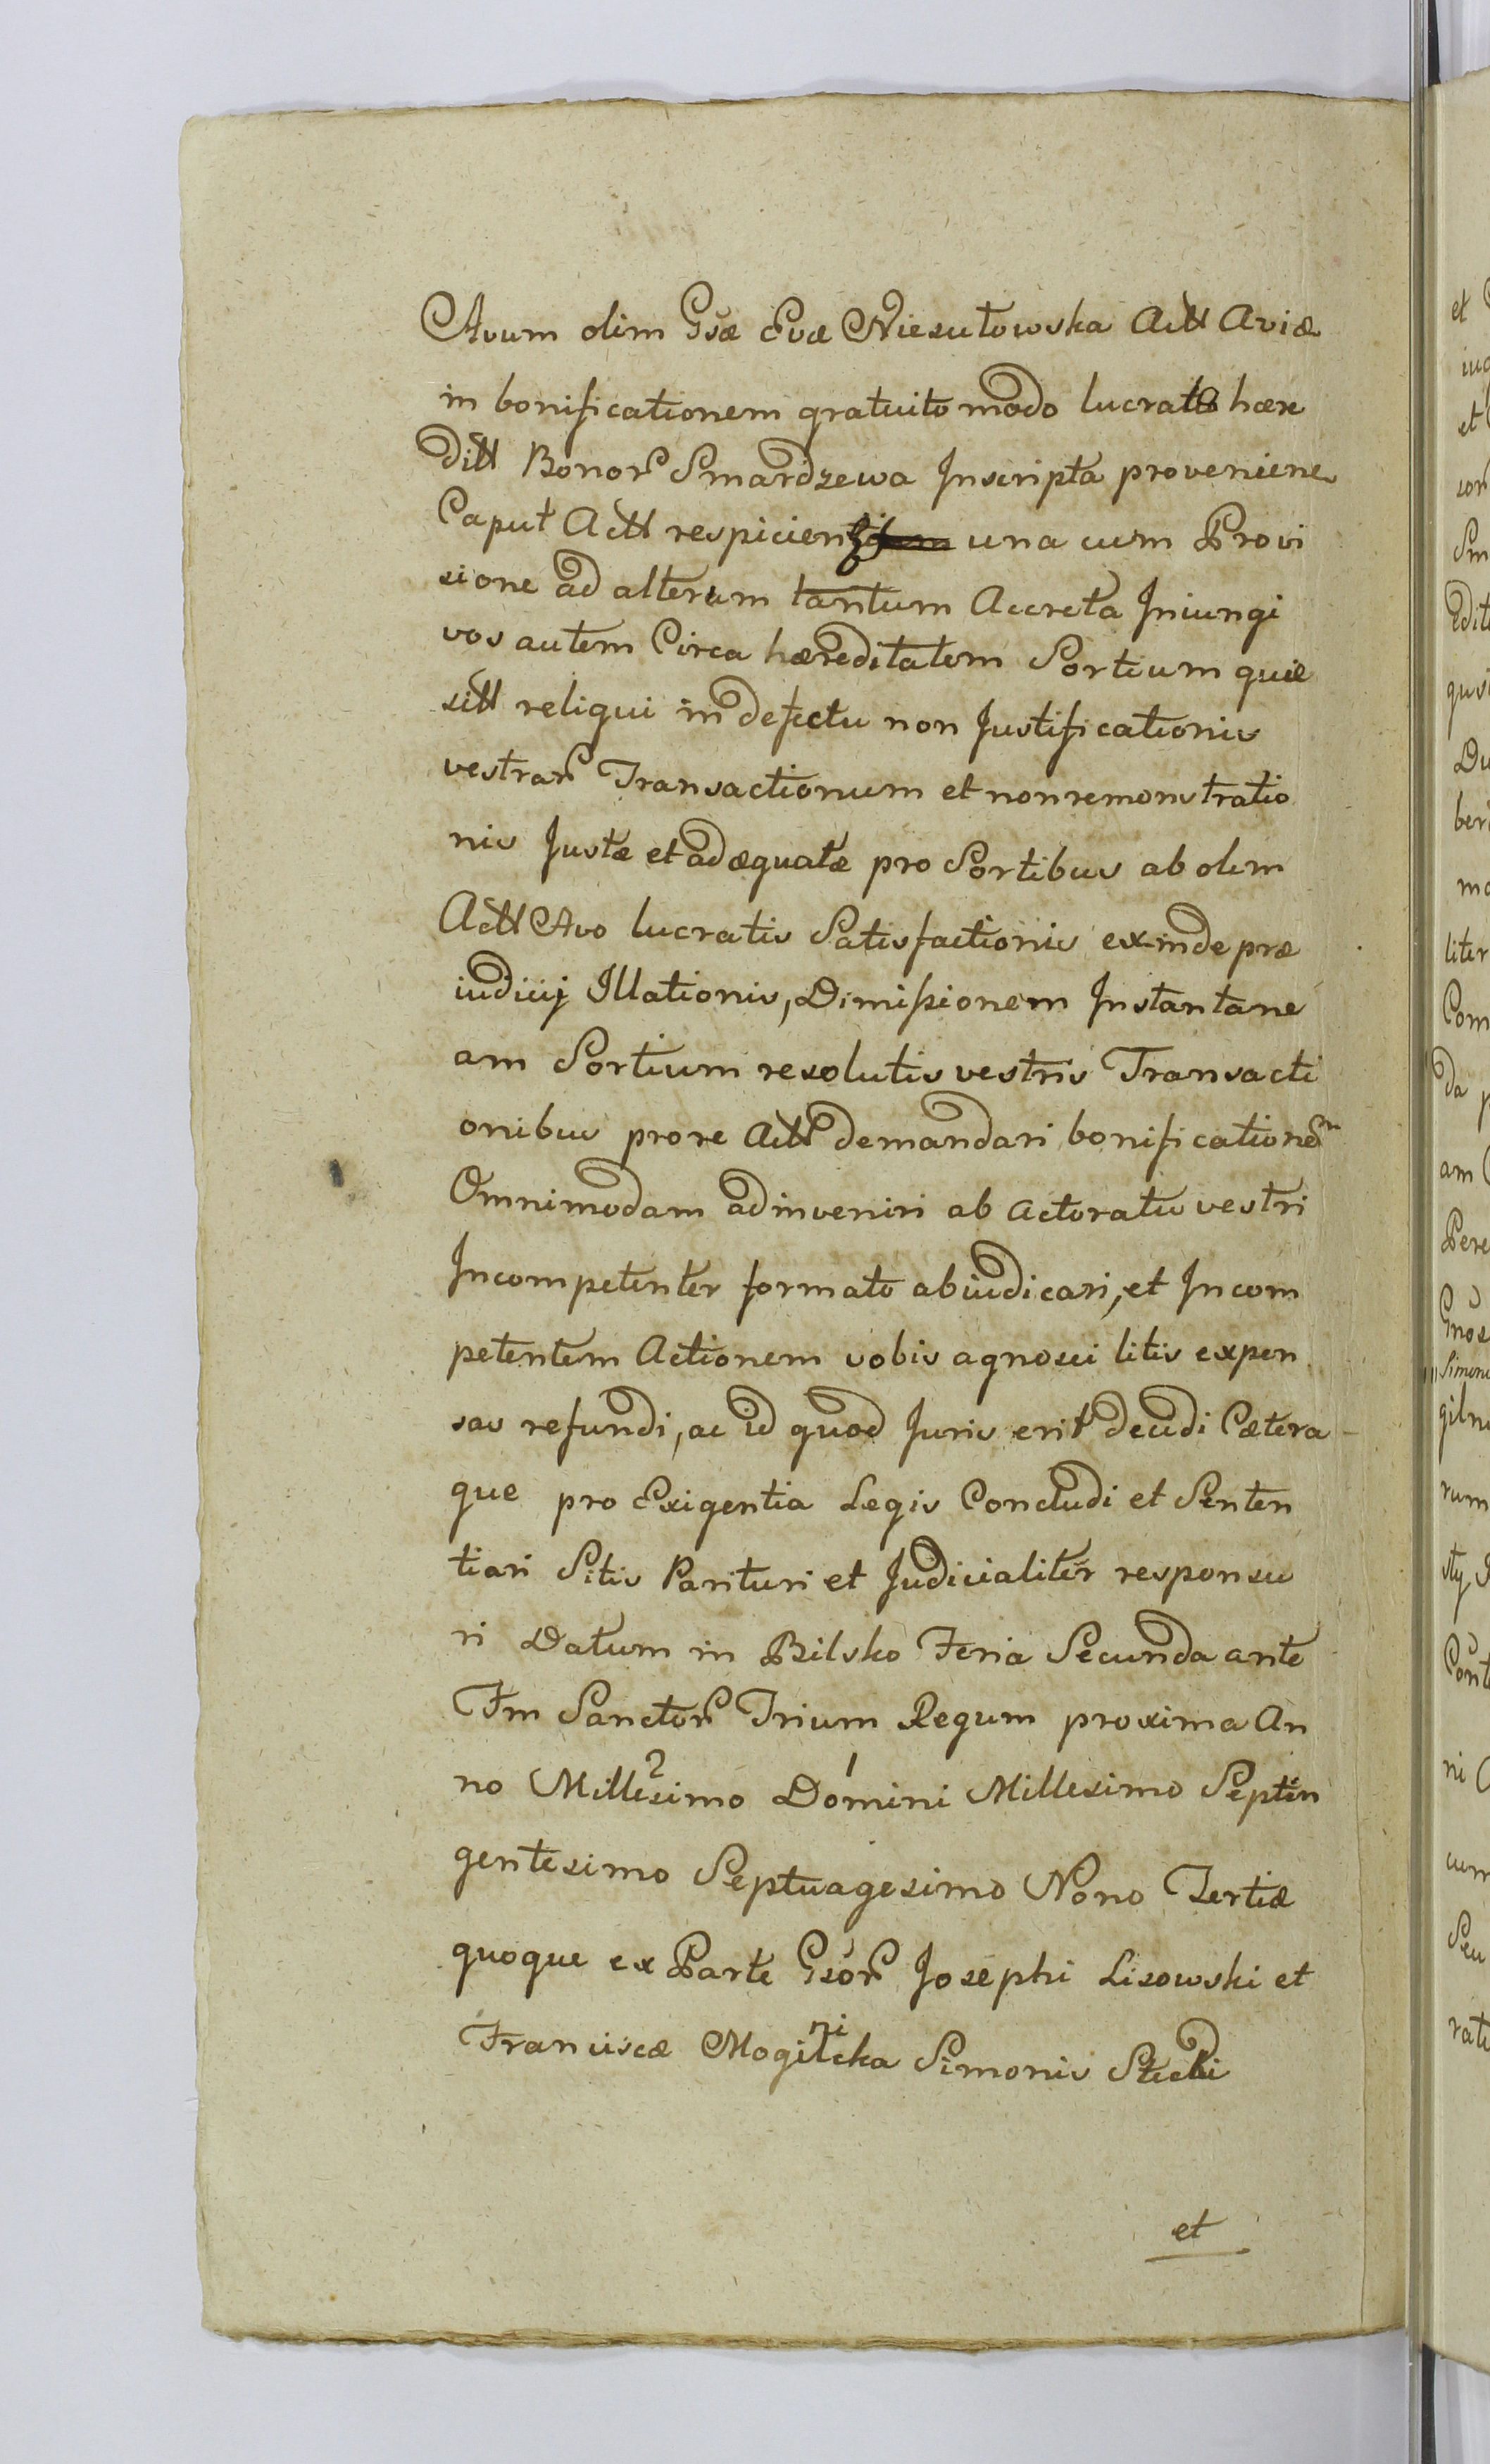 Avum olim Gsæ Evæ Niesułowska Actt Aviæ
in bonificationem gratuito modo lucratt hære
ditt Bonor Smardzewa Inscripta proveniens
Caput Actt respicien una cum Provi
sione ad alterum tantum Accreta Iniungi
vos autem Circa hæreditatem Sortium quæ
sitt reliqui in defectu non Justificationis
vestrar Transactionum et non remonstratio
nis Justæ et adæquatæ pro Sortibus ab olim
Actt Avo lucratis Satisfactionis exinde præ
iudicij Illationis, Dimissionem Instantane
am Sortium resolutis vestris Transacti
onibus pro re Actt demandari bonificationem
Omnimodam adinveniri ab Actoratu vestri
Incompetenter formato abiudicari, et Incom
petentem Actionem vobis agnosci litis expen
sas refundi, ac id quod Juris erit decidi Cætera
que pro Exigentia Legis Concludi et Senten
tiari Sitis Parituri et Judicialiter responsu
ri Datum in Bilsko Feria Secunda ante
Fm Sanctor Trium Regum proxima An
no Millesimo Domini Millesimo Septin
gentesimo Septuagesimo Nono Tertiæ
quoque ex Parte Gsor Josephi Lisowski et
Franciscæ Simonis
et